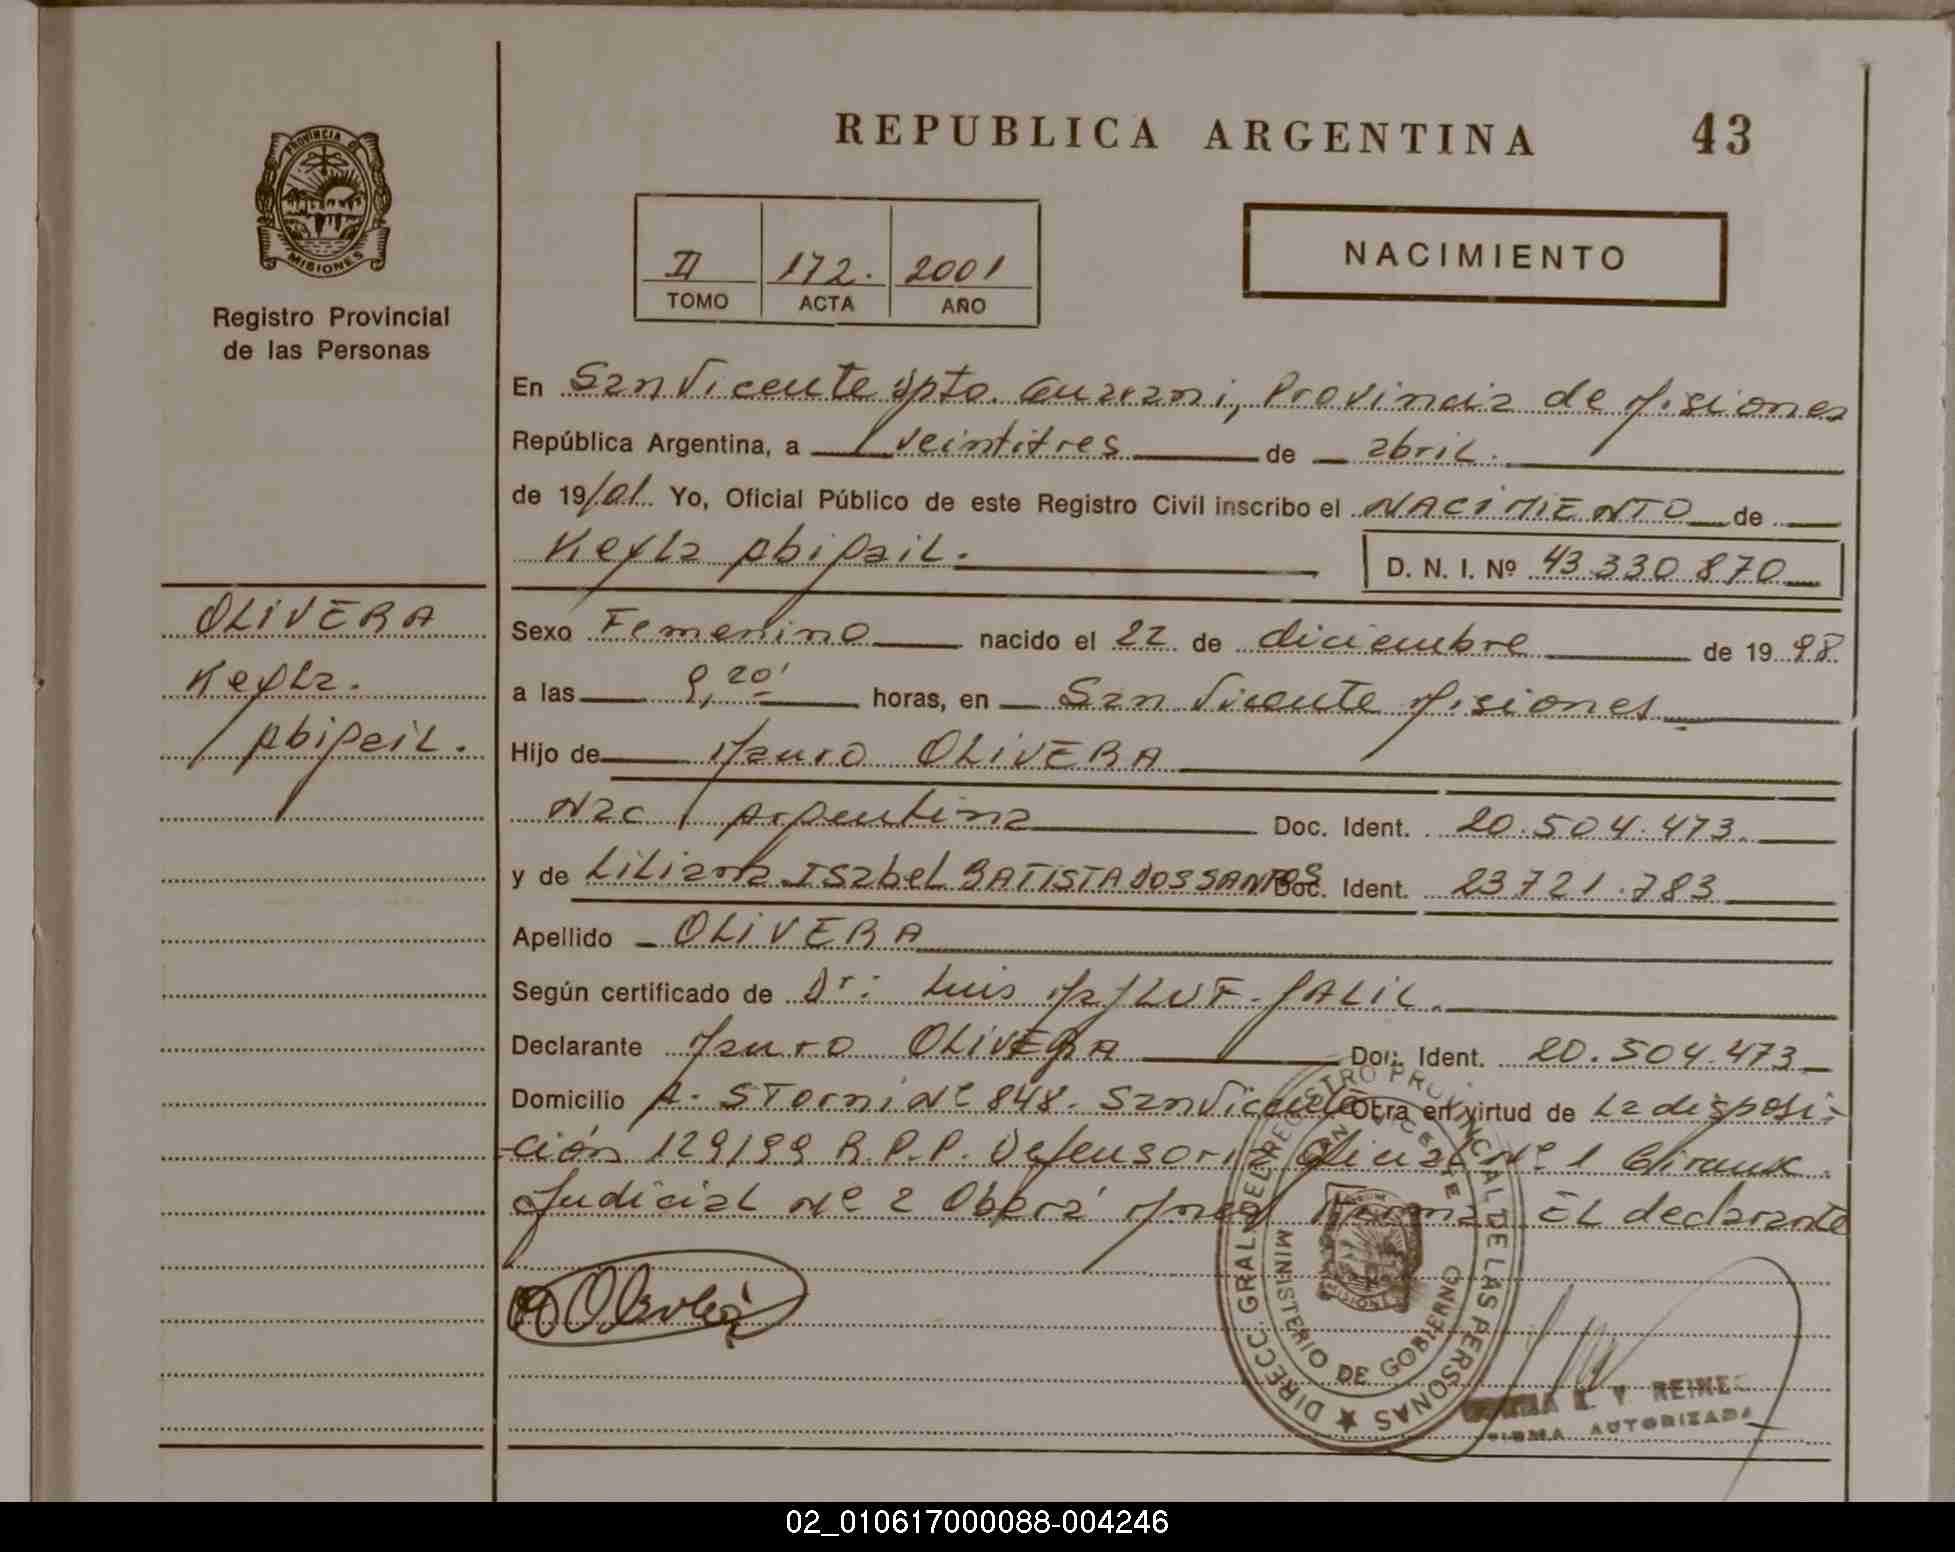 REPUBLICA ARGENTINA 43
PROVINCIA DE
MISIONES
Registro Provincial
de las Personas
II 172. 2001
TOMO ACTA AÑO
NACIMIENTO
En San Vicente Dpto. Guarani, Provincia de Misiones
República Argentina, a veintitres de abril.
de 19/01 Yo, Oficial Público de este Registro Civil inscribo el NACIMIENTO de
Keyla Abigail.
D. N. I. Nº 43.330.870
OLIVERA
Keyla.
Abigail.
Sexo Femenino nacido el 22 de diciembre de 19 98
a las 9,20' horas, en San Vicente Misiones
Hijo de Mauro OLIVERA
Nac Argentina Doc. Ident. 20.504.473
y de Liliana Isabel BATISTA DOS SANTOS Doc. Ident. 23721.783
Apellido OLIVERA
Según certificado de Dr: Luis GALIL.
Declarante Mauro OLIVERA Doc. Ident. 20.504.473
Domicilio A. Storni Nº 848. San Vicente Obra en virtud de la disposi-
ción 129/99 R.P.P. Defensoria Oficial Nº 1
Judicial Nº 2 Oberá Mnes Firma El declarante
DIRECC. GRAL. DEL REGISTRO PROVINCIAL DE LAS PERSONAS
SAN VICENTE
MINISTERIO DE GOBIERNO
FIRMA AUTORIZADA
02_010617000088-004246